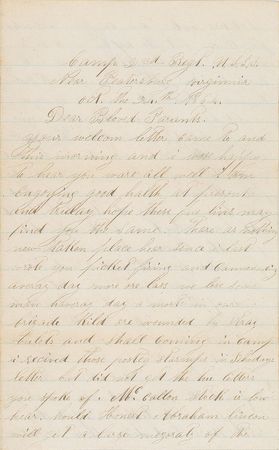 Camp 2nd Regt. U.S.S.S.
Near Petersburg virginnia
oct. the 24th 1864
Dear Beloved Parents
your welcom letter came to and
this morning and i was happy
to hear you were all well i am
enjoying good health at present
and truley hope these few lines may
find you the same. There is nothing
new taken place hear since i last
wrote you picket firing and Cannonading
avray day more ore less we lose some
men havray day a most in our
brigade kild ore wounded by stray
bulets and shell comming in camp
i received those posted stamps in
letter but did not get the letter
you spoke of. McCallon stock is low
hear. would Honest Abraham lincon
will get a large megoraty of the